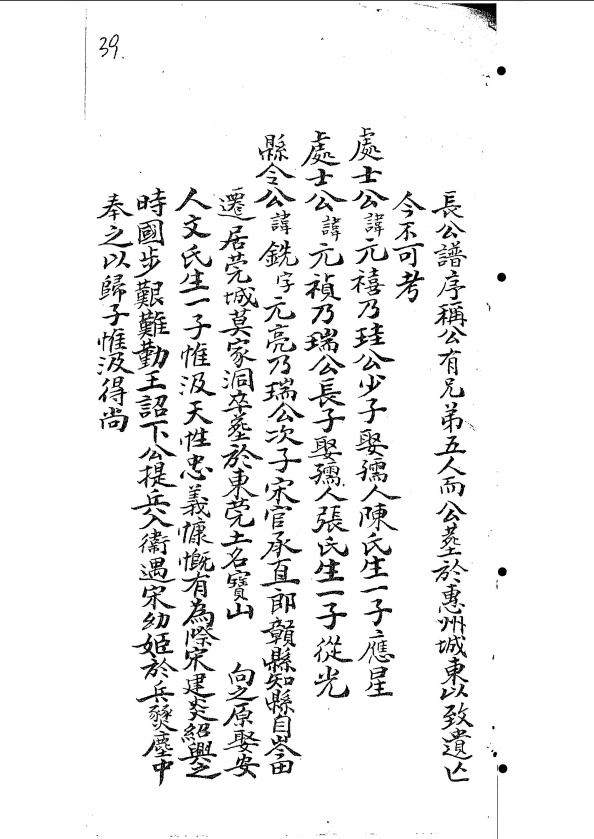 39.
長公譜序稱公有兄弟五人而公墓於惠州城東以致遺亡
今不可考
處士公諱元禧乃珪公少子娶孺人陳氏生一子應星
處士公諱元禎乃瑞公長子娶孺人張氏生一子從光
縣令公諱銑字元亮乃瑞公次子宋官承直郎贛縣知縣自岑田
遷居莞城莫家洞卒墓於東莞土名寶山 向之原娶安
人文氏生一子惟汲天性忠義慷慨有為際宋建炎紹興之
時國步艱難勤王詔下公提兵入衞遇宋幼姬於兵燹塵中
奉之以歸子惟汲得尚